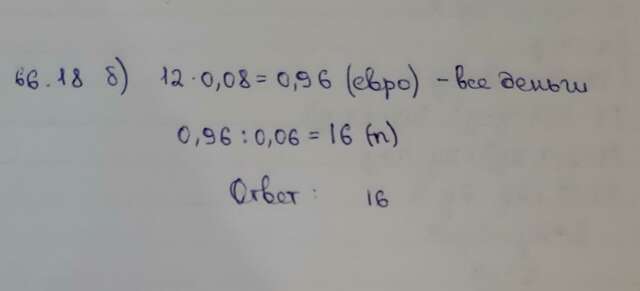 66.18 б) 12 · 0,08 = 0,96 (евро) - все деньги
0,96 : 0,06 = 16 (п)
Ответ: 16